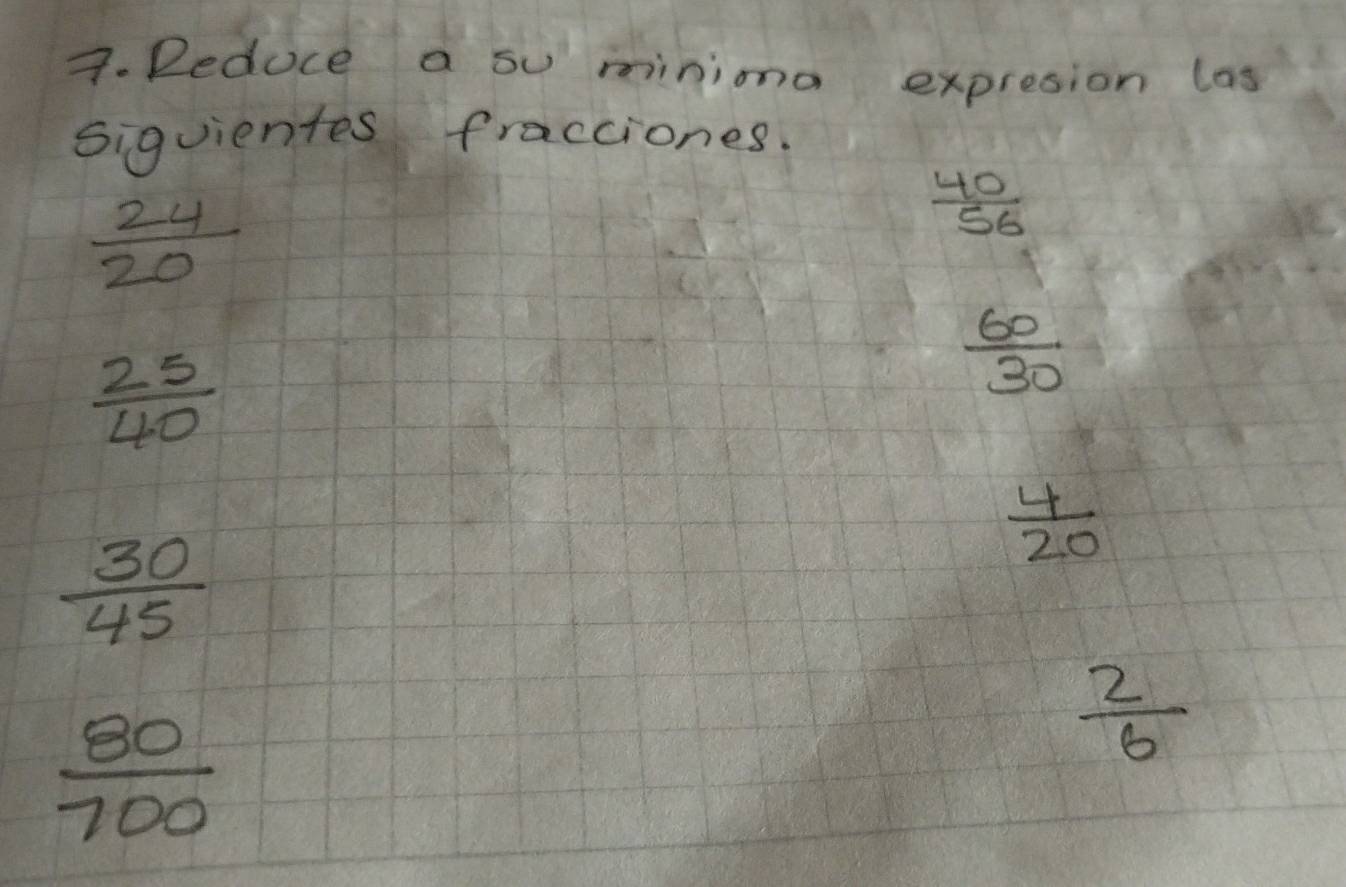 7. Reduce a su minima expresion las
siguientes fracciones.
24/20
40/56
25/40
60/30
30/45
4/20
80/700
2/6